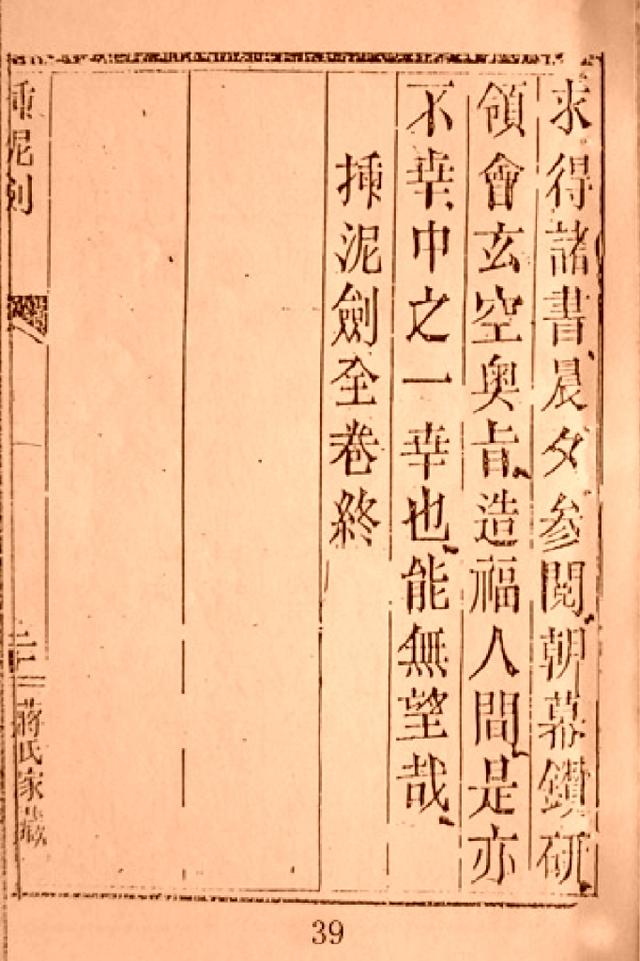 求得諸書、晨夕參閱、朝幕鑽研、
領會玄空奥旨、造福人間、是亦
不幸、中之一幸也、能無望哉、
挿泥劍全卷終
挿泥劍
二十
蔣氏家藏
39